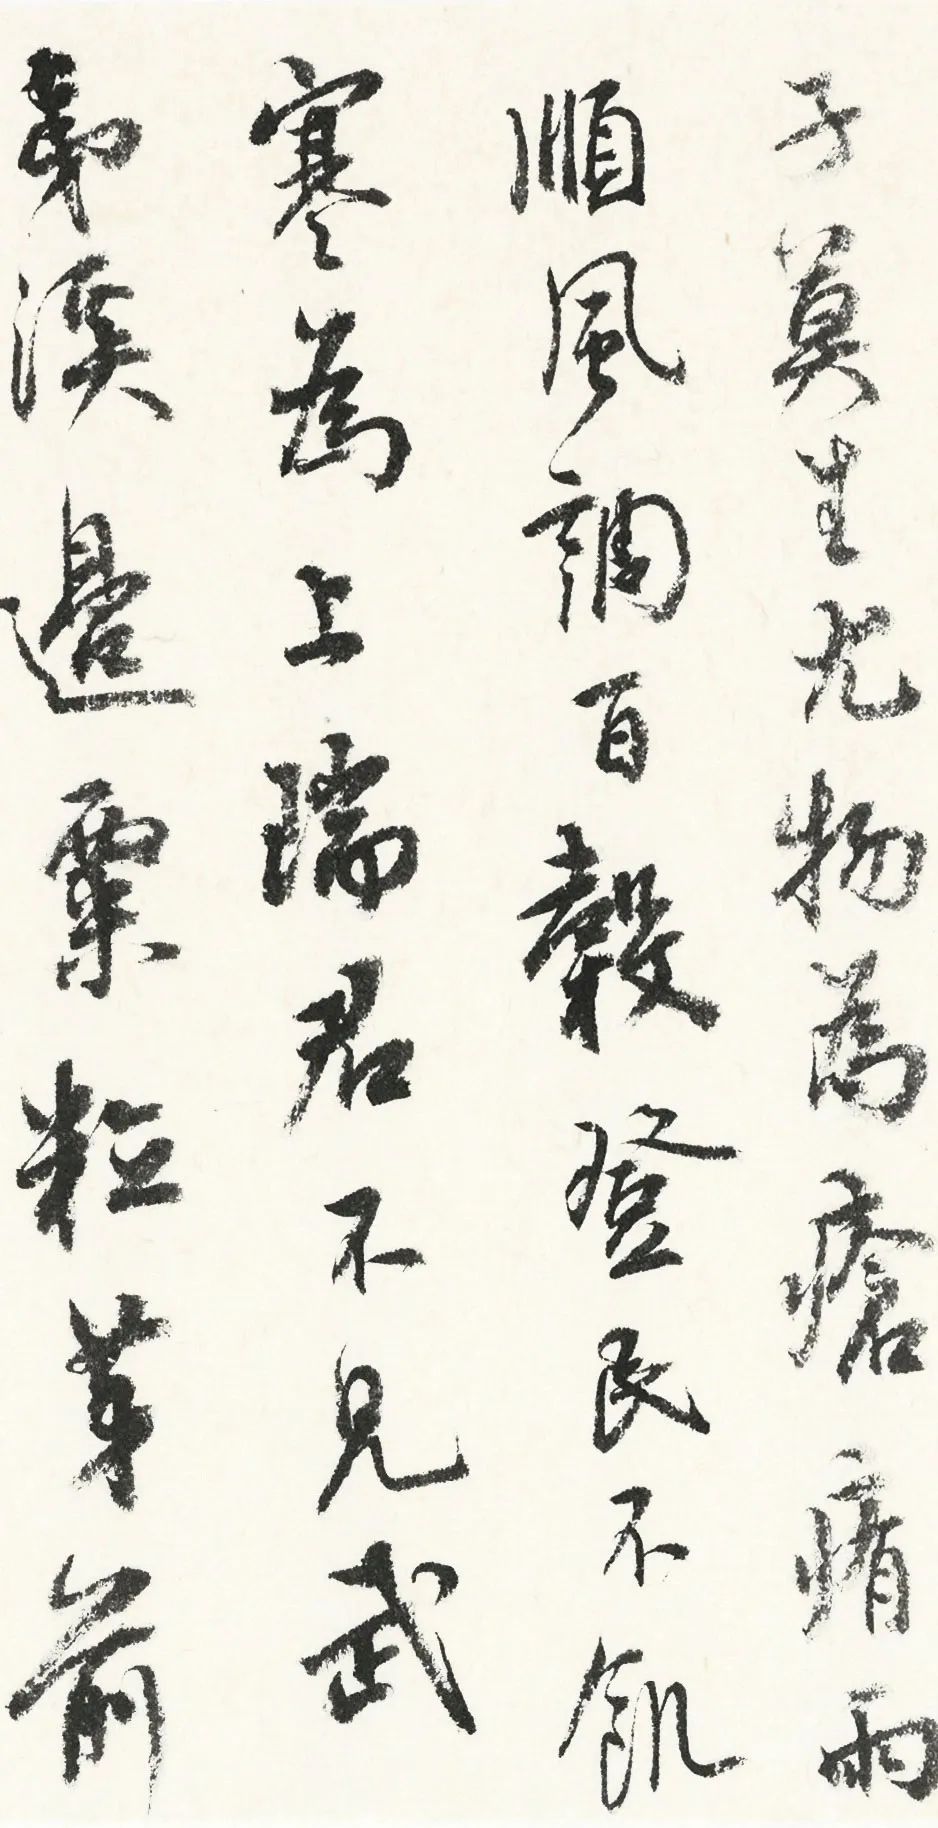 子莫生尤物為瘡痏雨
順風調百穀登民不飢
寒為上瑞君不見武
夷溪邊粟粒芽前